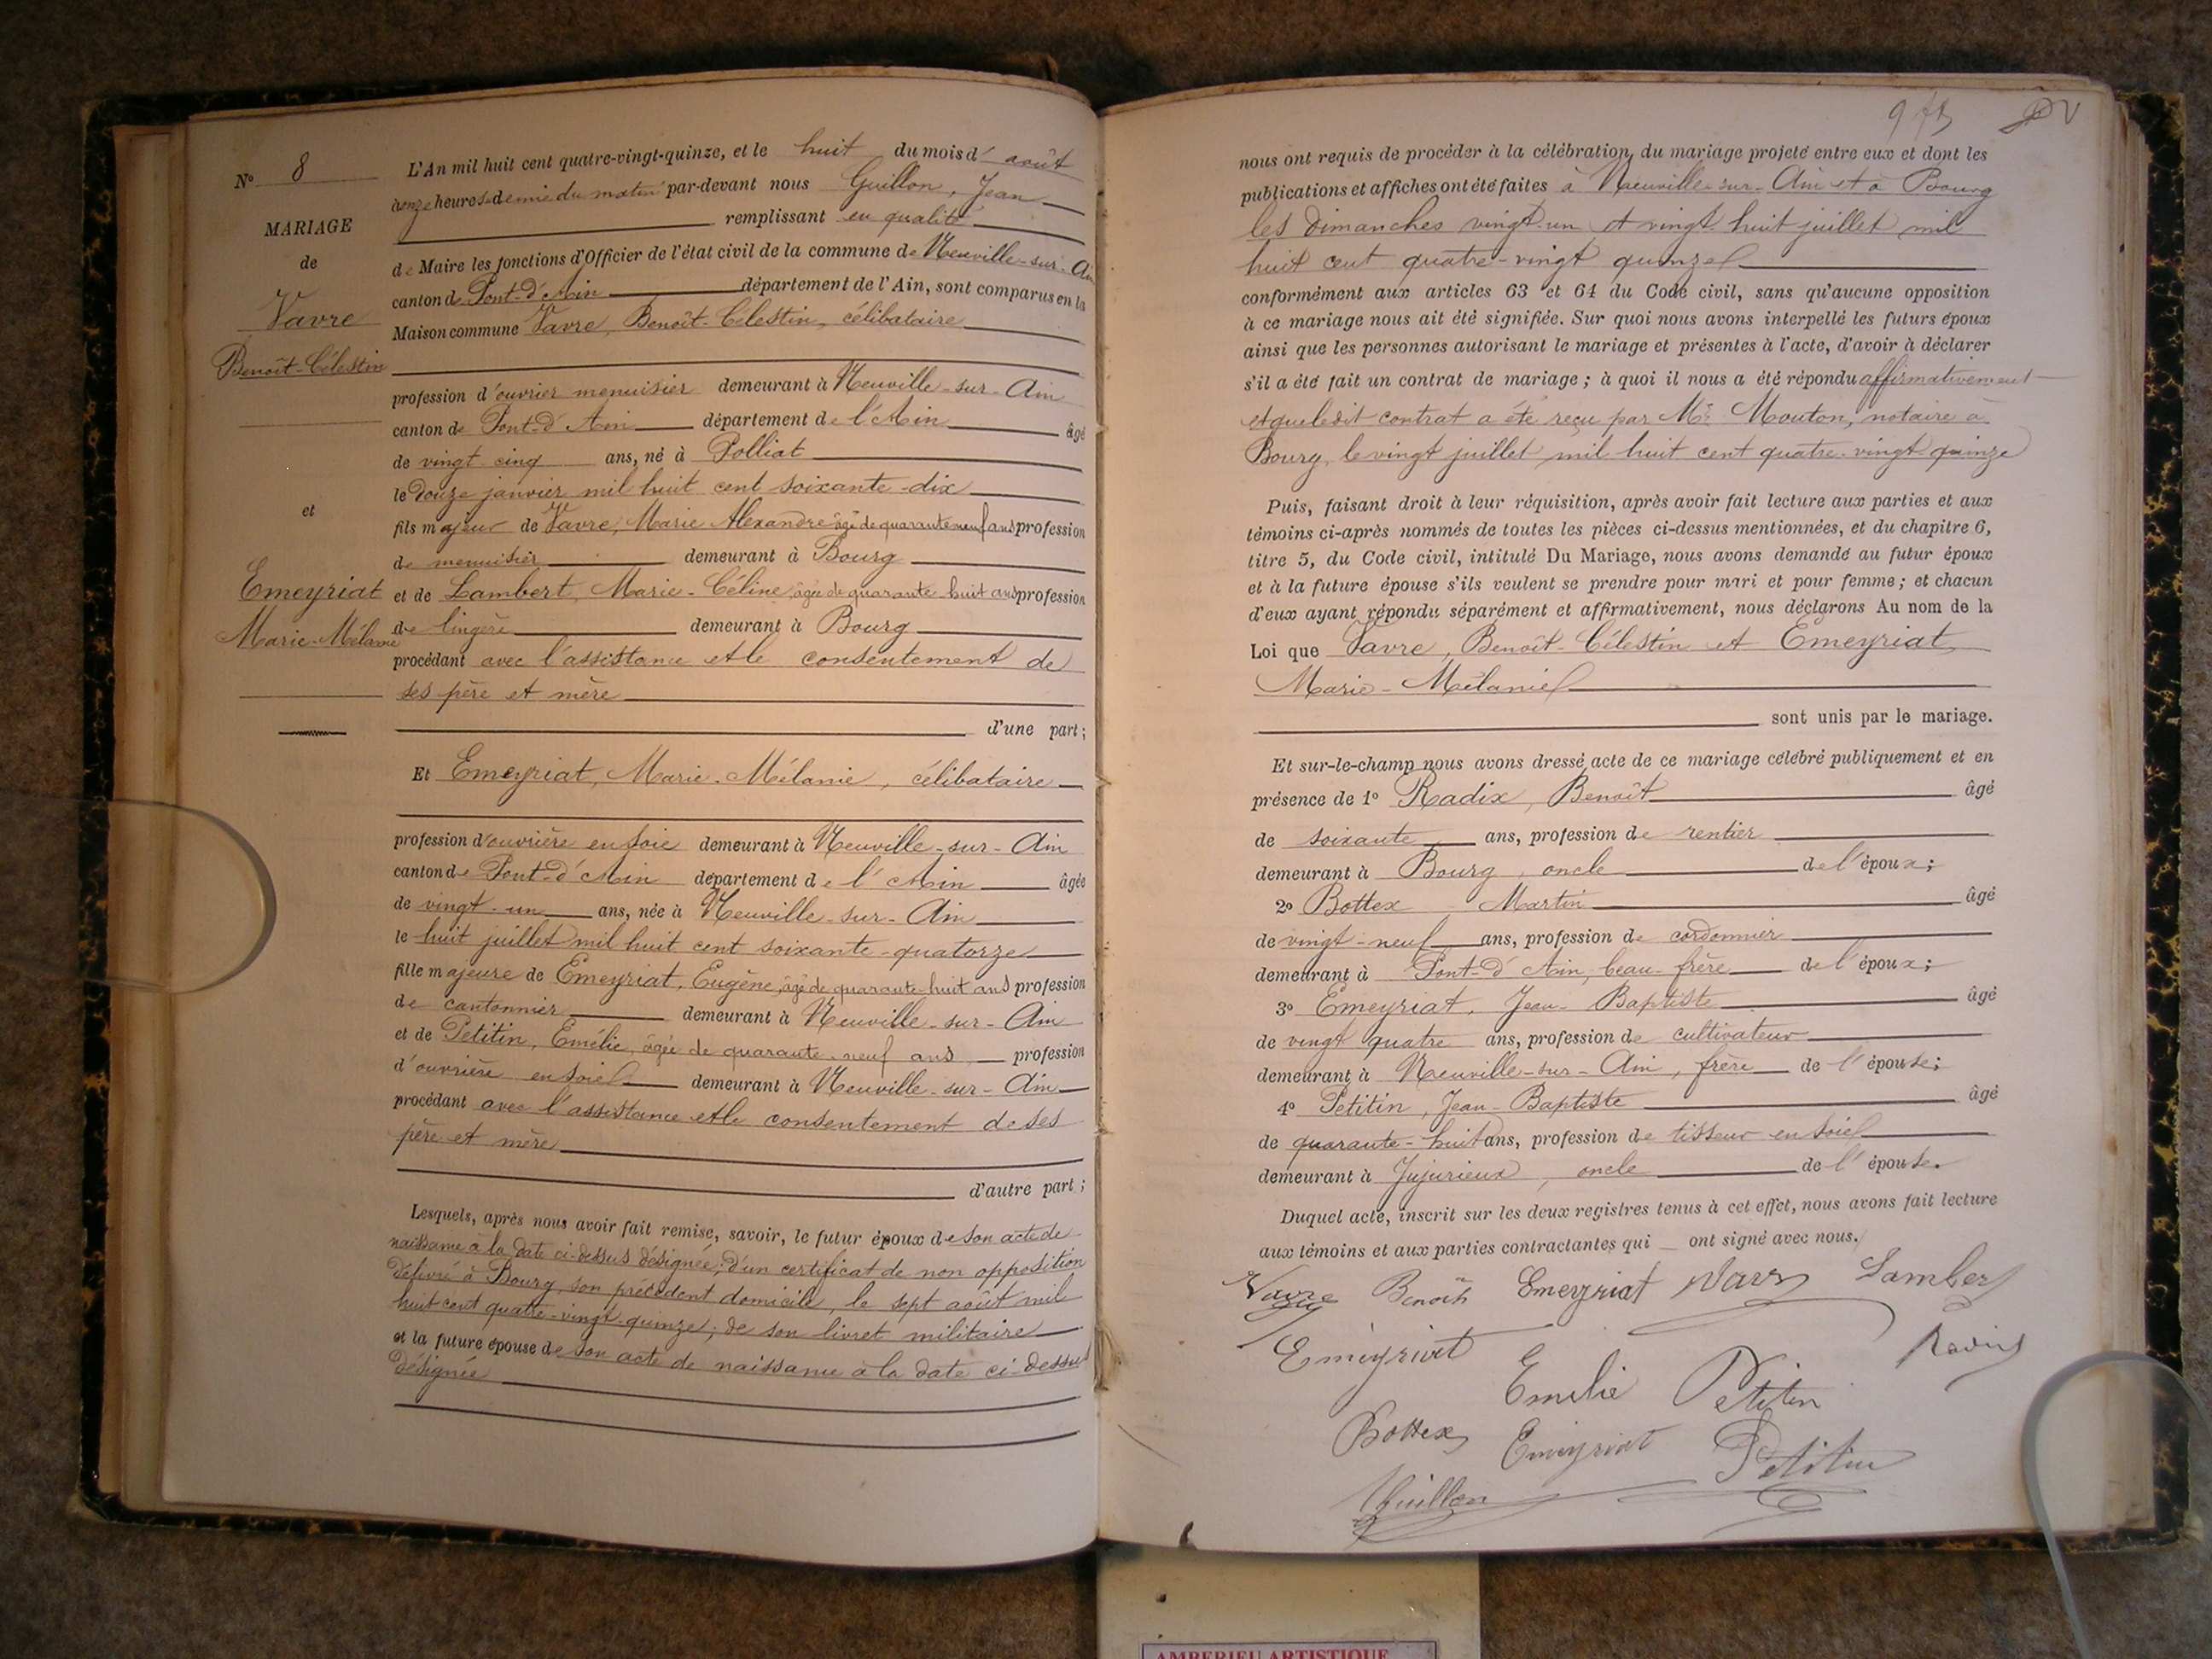 N° 8
MARIAGE
de
Vavre
Benoît-Célestin
et
Emeyriat
Marie-Mélanie
L'An mil huit cent quatre-vingt-quinze, et le huit du mois d'août
à onze heures et demie du matin par-devant nous Guillon, Jean
remplissant en qualité
de Maire les fonctions d'Officier de l'état civil de la commune de Neuville-sur-Ain
canton de Pont-d'Ain département de l'Ain, sont comparus en la
Maison commune Vavre, Benoît-Célestin, célibataire
profession d'ouvrier menuisier demeurant à Neuville-sur-Ain
canton de Pont-d'Ain département de l'Ain âgé
de vingt-cinq ans, né à Polliat
le douze janvier mil huit cent soixante-dix
fils majeur de Vavre, Marie Alexandre âgé de quarante neuf ans profession
de menuisier demeurant à Bourg
et de Lambert, Marie-Céline, âgée de quarante-huit ans profession
de lingère demeurant à Bourg
procédant avec l'assistance et le consentement de
ses père et mère
d'une part;
Et Emeyriat, Marie-Mélanie, célibataire
profession d'ouvrière en soie demeurant à Neuville-sur-Ain
canton de Pont-d'Ain département de l'Ain âgée
de vingt-un ans, née à Neuville-sur-Ain
le huit juillet mil huit cent soixante-quatorze
fille majeure de Emeyriat, Eugène, âgé de quarante-huit ans profession
de cantonnier demeurant à Neuville-sur-Ain
et de Petitin, Emélie, âgée de quarante-neuf ans profession
d'ouvrière en soie demeurant à Neuville-sur-Ain
procédant avec l'assistance et le consentement de ses
père et mère
d'autre part;
Lesquels, après nous avoir fait remise, savoir, le futur époux de son acte de
naissance à la date ci-dessus désignée; d'un certificat de non opposition
délivré à Bourg, son précédent domicile, le sept août mil
huit cent quatre-vingt-quinze; de son livret militaire
et la future épouse de son acte de naissance à la date ci-dessus
désignée
nous ont requis de procéder à la célébration du mariage projeté entre eux et dont les
publications et affiches ont été faites à Neuville-sur-Ain et à Bourg
les dimanches vingt-un et vingt-huit juillet mil
huit cent quatre-vingt quinze
conformément aux articles 63 et 64 du Code civil, sans qu'aucune opposition
à ce mariage nous ait été signifiée. Sur quoi nous avons interpellé les futurs époux
ainsi que les personnes autorisant le mariage et présentes à l'acte, d'avoir à déclarer
s'il a été fait un contrat de mariage; à quoi il nous a été répondu affirmativement
et que ledit contrat a été reçu par Me Mouton, notaire à
Bourg, le vingt juillet mil huit cent quatre-vingt quinze
Puis, faisant droit à leur réquisition, après avoir fait lecture aux parties et aux
témoins ci-après nommés de toutes les pièces ci-dessus mentionnées, et du chapitre 6,
titre 5, du Code civil, intitulé Du Mariage, nous avons demandé au futur époux
et à la future épouse s'ils veulent se prendre pour mari et pour femme; et chacun
d'eux ayant répondu séparément et affirmativement, nous déclarons Au nom de la
Loi que Vavre, Benoît-Célestin et Emeyriat
Marie-Mélanie
sont unis par le mariage.
Et sur-le-champ nous avons dressé acte de ce mariage célébré publiquement et en
présence de 1° Radix, Benoît âgé
de soixante ans, profession de rentier
demeurant à Bourg, oncle de l'époux;
2° Bottex Martin âgé
de vingt-neuf ans, profession de cordonnier
demeurant à Pont-d'Ain, beau-frère de l'époux;
3° Emeyriat, Jean-Baptiste âgé
de vingt quatre ans, profession de cultivateur
demeurant à Neuville-sur-Ain, frère de l'épouse;
4° Petitin, Jean-Baptiste âgé
de quarante-huit ans, profession de tisseur en soie
demeurant à Jujurieux, oncle de l'épouse.
Duquel acte, inscrit sur les deux registres tenus à cet effet, nous avons fait lecture
aux témoins et aux parties contractantes qui ont signé avec nous.
Vavre Benoît Emeyriat Vavre Lambert
Emeyriat Emelie Petitin Radix
Bottex Emeyriat Petitin
Guillon
AMBERIEU ARTISTIQUE